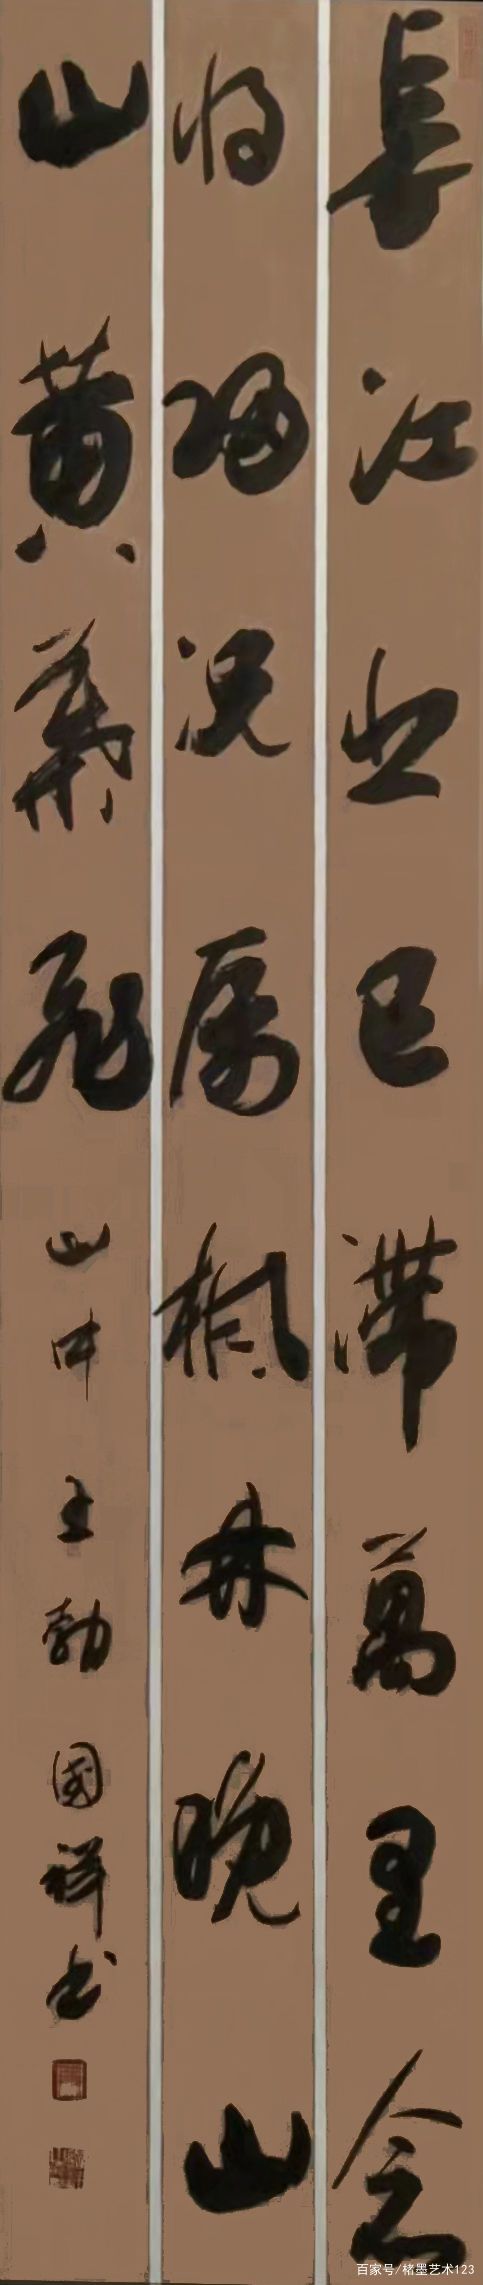 長江悲已滯萬里念
将歸况属楓林晚山
山黄葉飛
山中王勃國祥书
百家号/楮墨艺术123